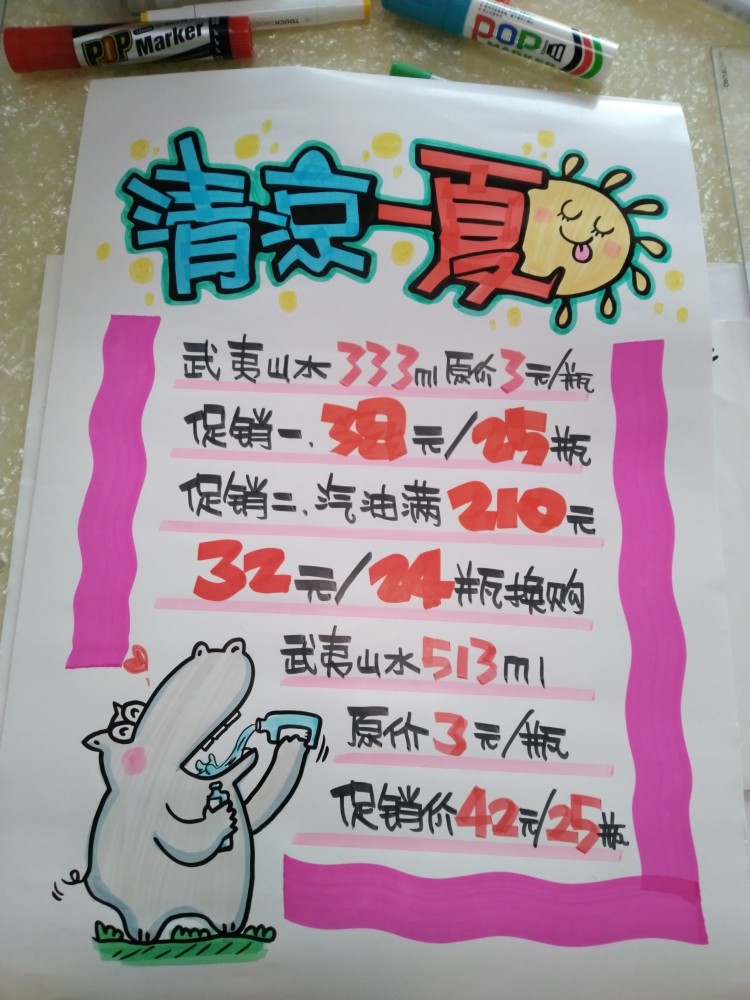 POP Marker
TOUCH
POP
MARKER
清凉一夏
武夷山水333ml原价3元/瓶
促销一、38元/25瓶
促销二、汽油满210元
32元/24瓶换购
武夷山水513ml
原价3元/瓶
促销价42元/25瓶